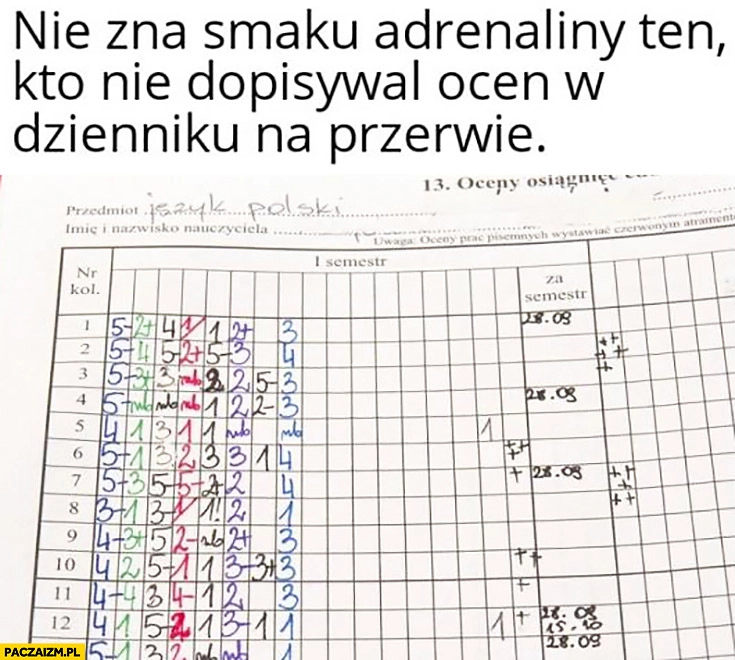 Nie zna smaku adrenaliny ten,
kto nie dopisywal ocen w
dzienniku na przerwie.
13. Oceny osiągnięć
Przedmiot język polski
Imię i nazwisko nauczyciela
Uwaga: Oceny prac pisemnych wystawiać czerwonym atrament
Nr kol. I semestr za semestr
1 5- 2+ 4 1 1 2+ 3 28.09
2 5- 4 5- 2+ 5- 3 4 ++ + +
3 5- 3+ 3 nb 2 2 5- 3
4 5- nb nb nb 1 2 2- 3 28.09
5 4 1 3 1 1 nb nb 1
6 5- 1 3 2 3 3 1 4 ++ +
7 5- 3 5 5- 2 4 + 28.09 ++ + ++
8 3- 1 3- 1 1! 2 1
9 4- 3+ 5 2- nb 2+ 3
10 4 2 5- 1 1 3- 3+ 3 ++
11 4- 4 3 4- 1 2 3 +
12 4 1 5- 2 1 3- 1 1 1 + 28.09 15.10
5- 1 3 2 nb nb 1 28.09
PACZAIZM.PL